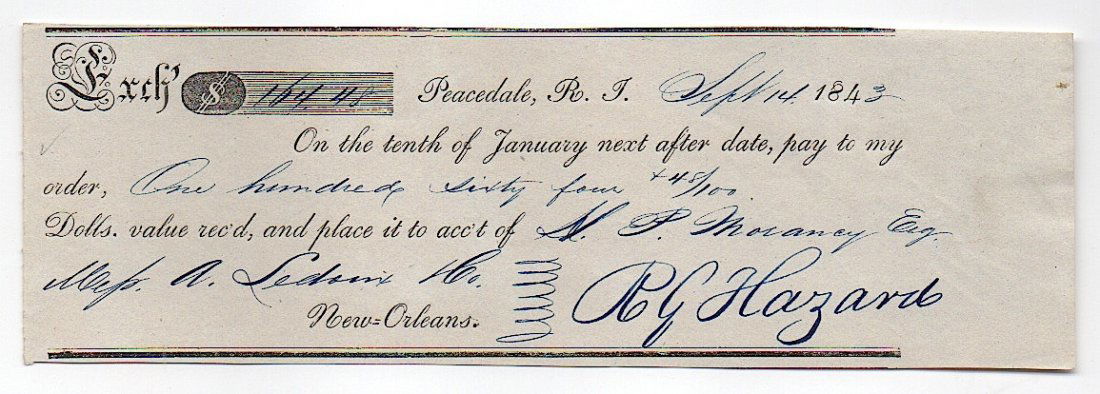 Exch' $ 164.48 Peacedale, R. I. Sept 14. 1843
On the tenth of January next after date, pay to my
order, One hundred sixty four + 48/100
Dolls. value rec'd, and place it to acc't of P. Morancy Esq.
Mess. A. Ledoux & Co.
New=Orleans. R G Hazard